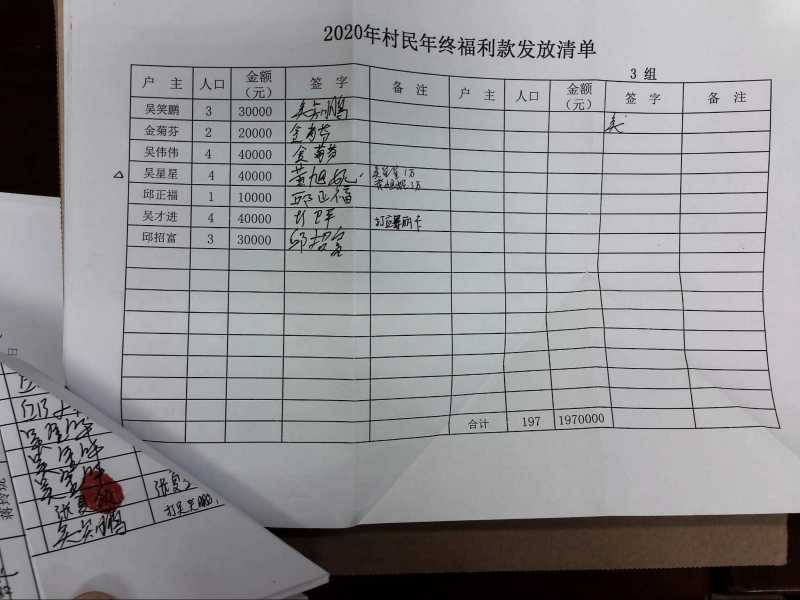 2020年村民年终福利款发放清单
3 组
户 主 人口 金额(元) 签 字 备 注 户 主 人口 金额(元) 签 字 备 注
吴笑鹏 3 30000 吴笑鹏 吴
金菊芬 2 20000 金菊芬
吴伟伟 4 40000 金菊芬
吴星星 4 40000 黄旭妮 吴星星1万 黄旭妮1万
邱正福 1 10000 邱正福
吴才进 4 40000
邱招富 3 30000 邱招富
合计 197 1970000
日
吴笑鹏